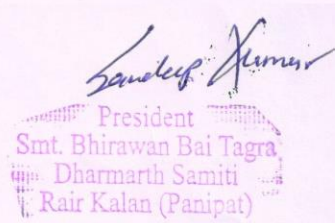 Sandeep Kumar
President
Smt. Bhirawan Bai Tagra
Dharmarth Samiti
Rair Kalan (Panipat)